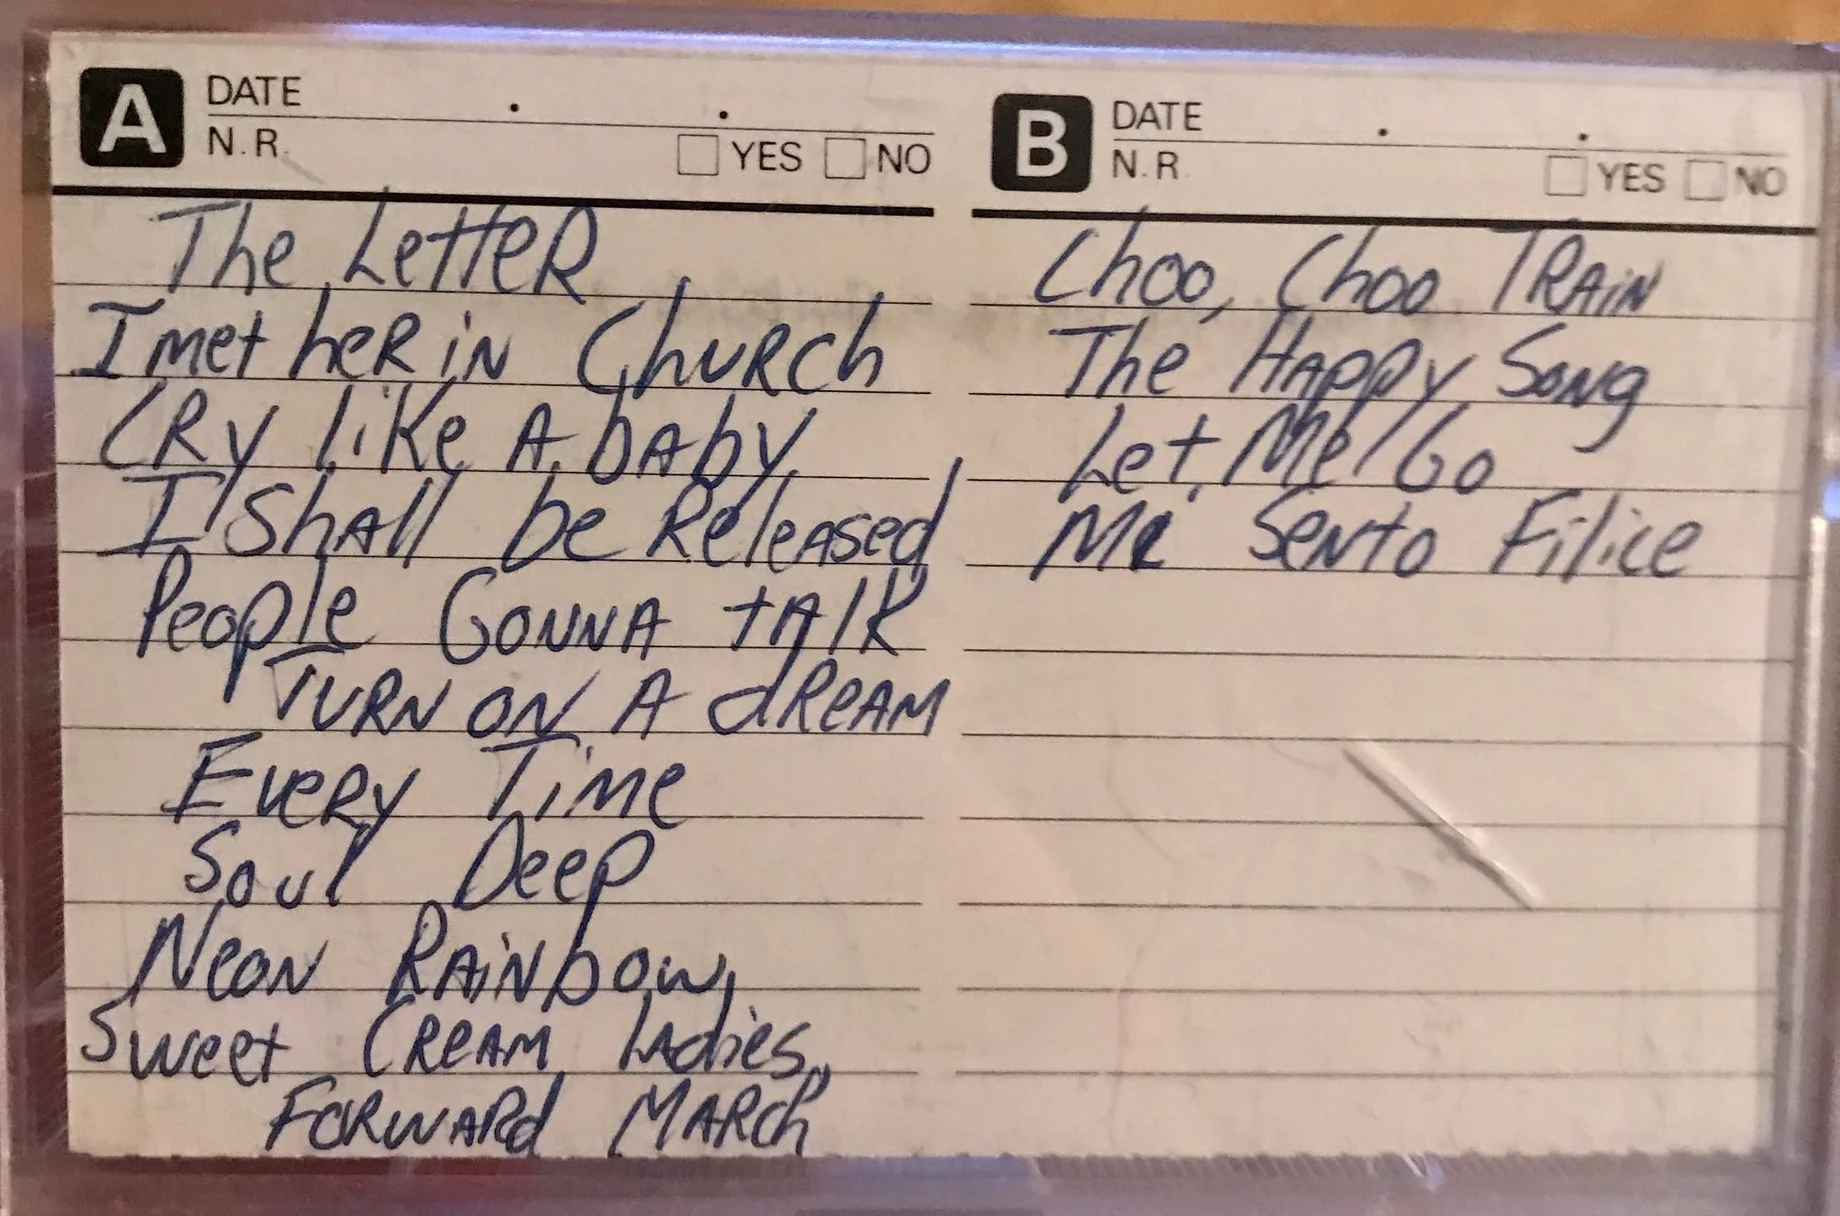 A DATE . .
N.R. YES NO
The Letter
I met her in Church
Cry like A baby
I Shall be Released
People Gonna talk
Turn on A dream
Every Time
Soul Deep
Neon Rainbow
Sweet Cream ladies,
Forward March
B DATE . .
N.R. YES NO
Choo, Choo Train
The Happy Song
Let Me Go
Mi Sento Filice